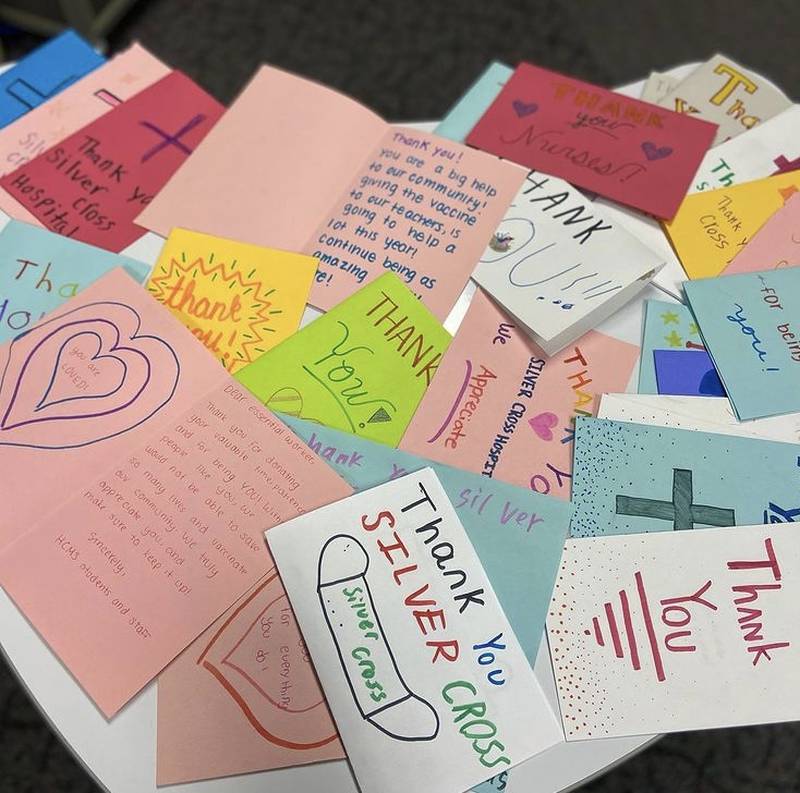 Thank you
Silver Cross
Hospital
Thank you!
you are a big help
to our community!
giving the vaccine
to our teachers, is
going to help a
lot this year!
continue being as
amazing
THANK
you
Nurses!
THANK
Tha
Thank
Cross
for being
you!
Tha
thank
you!
THANK
You!
We
Appreciate
SILVER CROSS HOSPIT
THANK YO
you are
LOVED!
Dear essential worker,
Thank you for donating
your valuable time, patience
and for being YOU! With
people like you we
would not be able to save
so many lives and vaccinate
our community. We truly
appreciate you and
make sure to keep it up!
Sincerely,
HCMS students and staff
hank
silver
for
everything
you do!
Thank You
SILVER CROSS
Silver Cross
Thank
You